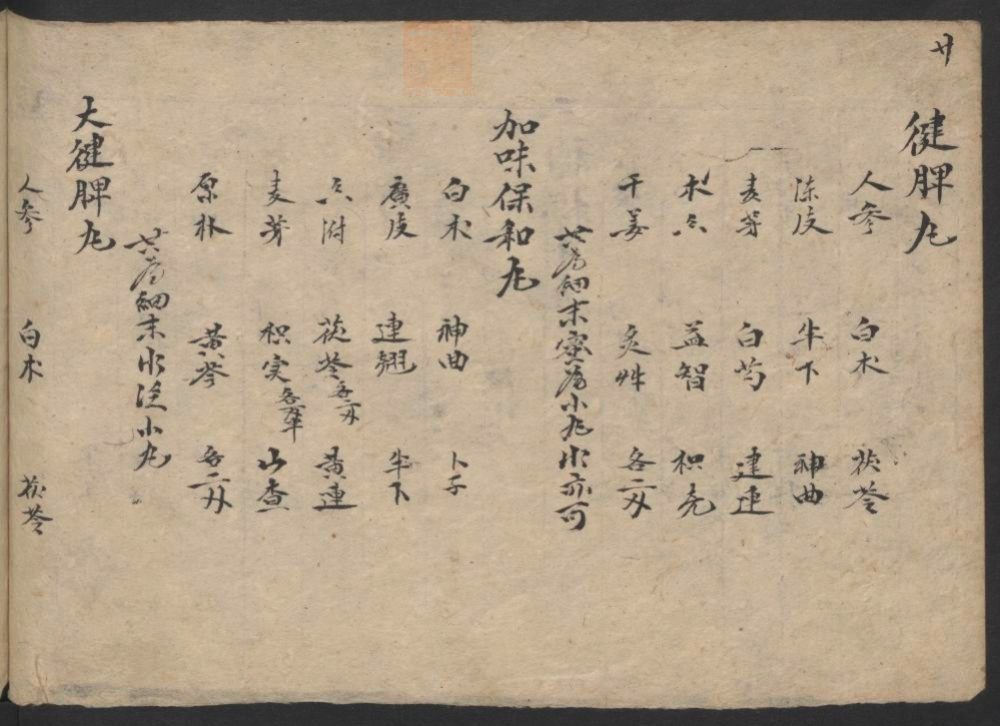 廿
健脾丸
人参 白术 茯苓
陈皮 半下 神曲
麦芽 白芍 建連
木六 益智 枳壳
干姜 炙艸 各二刄
共為細末蜜為小丸水亦可
加味保和丸
白术 神曲 卜子
廣皮 連翹 半下
六附 茯苓各二刄 黄連
麦芽 枳实各两半 山查
原朴 黄芩 各二刄
共為細末水泛小丸
大健脾丸
人参 白术 茯苓